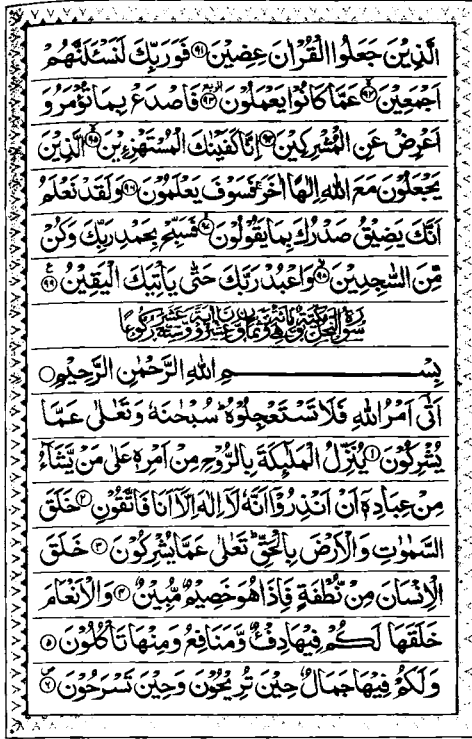 الَّذِيْنَ جَعَلُوا الْقُرْاٰنَ عِضِيْنَ ۟۹۱ فَوَرَبِّكَ لَنَسْـَٔلَنَّهُمْ
اَجْمَعِيْنَ ۟۹۲ عَمَّا كَانُوْا يَعْمَلُوْنَ ۟۹۳ فَاصْدَعْ بِمَا تُؤْمَرُ وَ
اَعْرِضْ عَنِ الْمُشْرِكِيْنَ ۟۹۴ اِنَّا كَفَيْنٰكَ الْمُسْتَهْزِءِيْنَ ۟۹۵ الَّذِيْنَ
يَجْعَلُوْنَ مَعَ اللّٰهِ اِلٰهًا اٰخَرَ ۚ فَسَوْفَ يَعْلَمُوْنَ ۟۹۶ وَلَقَدْ نَعْلَمُ
اَنَّكَ يَضِيْقُ صَدْرُكَ بِمَا يَقُوْلُوْنَ ۟۹۷ فَسَبِّحْ بِحَمْدِ رَبِّكَ وَكُنْ
مِّنَ السّٰجِدِيْنَ ۟۹۸ وَاعْبُدْ رَبَّكَ حَتّٰى يَاْتِيَكَ الْيَقِيْنُ ۟۹۹
بِسْمِ اللّٰهِ الرَّحْمٰنِ الرَّحِيْمِ
اَتٰۤى اَمْرُ اللّٰهِ فَلَا تَسْتَعْجِلُوْهُ ؕ سُبْحٰنَهٗ وَتَعٰلٰى عَمَّا
يُشْرِكُوْنَ ۟۱ يُنَزِّلُ الْمَلٰٓئِكَةَ بِالرُّوْحِ مِنْ اَمْرِهٖ عَلٰى مَنْ يَّشَآءُ
مِنْ عِبَادِهٖۤ اَنْ اَنْذِرُوْۤا اَنَّهٗ لَاۤ اِلٰهَ اِلَّاۤ اَنَا فَاتَّقُوْنِ ۟۲ خَلَقَ
السَّمٰوٰتِ وَالْاَرْضَ بِالْحَقِّ ؕ تَعٰلٰى عَمَّا يُشْرِكُوْنَ ۟۳ خَلَقَ
الْاِنْسَانَ مِنْ نُّطْفَةٍ فَاِذَا هُوَ خَصِيْمٌ مُّبِيْنٌ ۟۴ وَالْاَنْعَامَ
خَلَقَهَا ۚ لَكُمْ فِيْهَا دِفْءٌ وَّمَنَافِعُ وَمِنْهَا تَاْكُلُوْنَ ۟۵
وَلَكُمْ فِيْهَا جَمَالٌ حِيْنَ تُرِيْحُوْنَ وَحِيْنَ تَسْرَحُوْنَ ۟۶